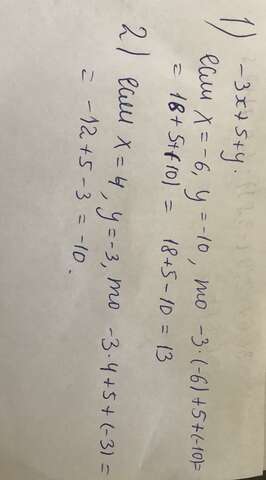 1) -3x+5+y.
если x=-6, y=-10, то -3·(-6)+5+(-10)=
= 18+5+(-10) = 18+5-10=13
2) если x=4, y=-3, то -3·4+5+(-3)=
= -12+5-3=-10.